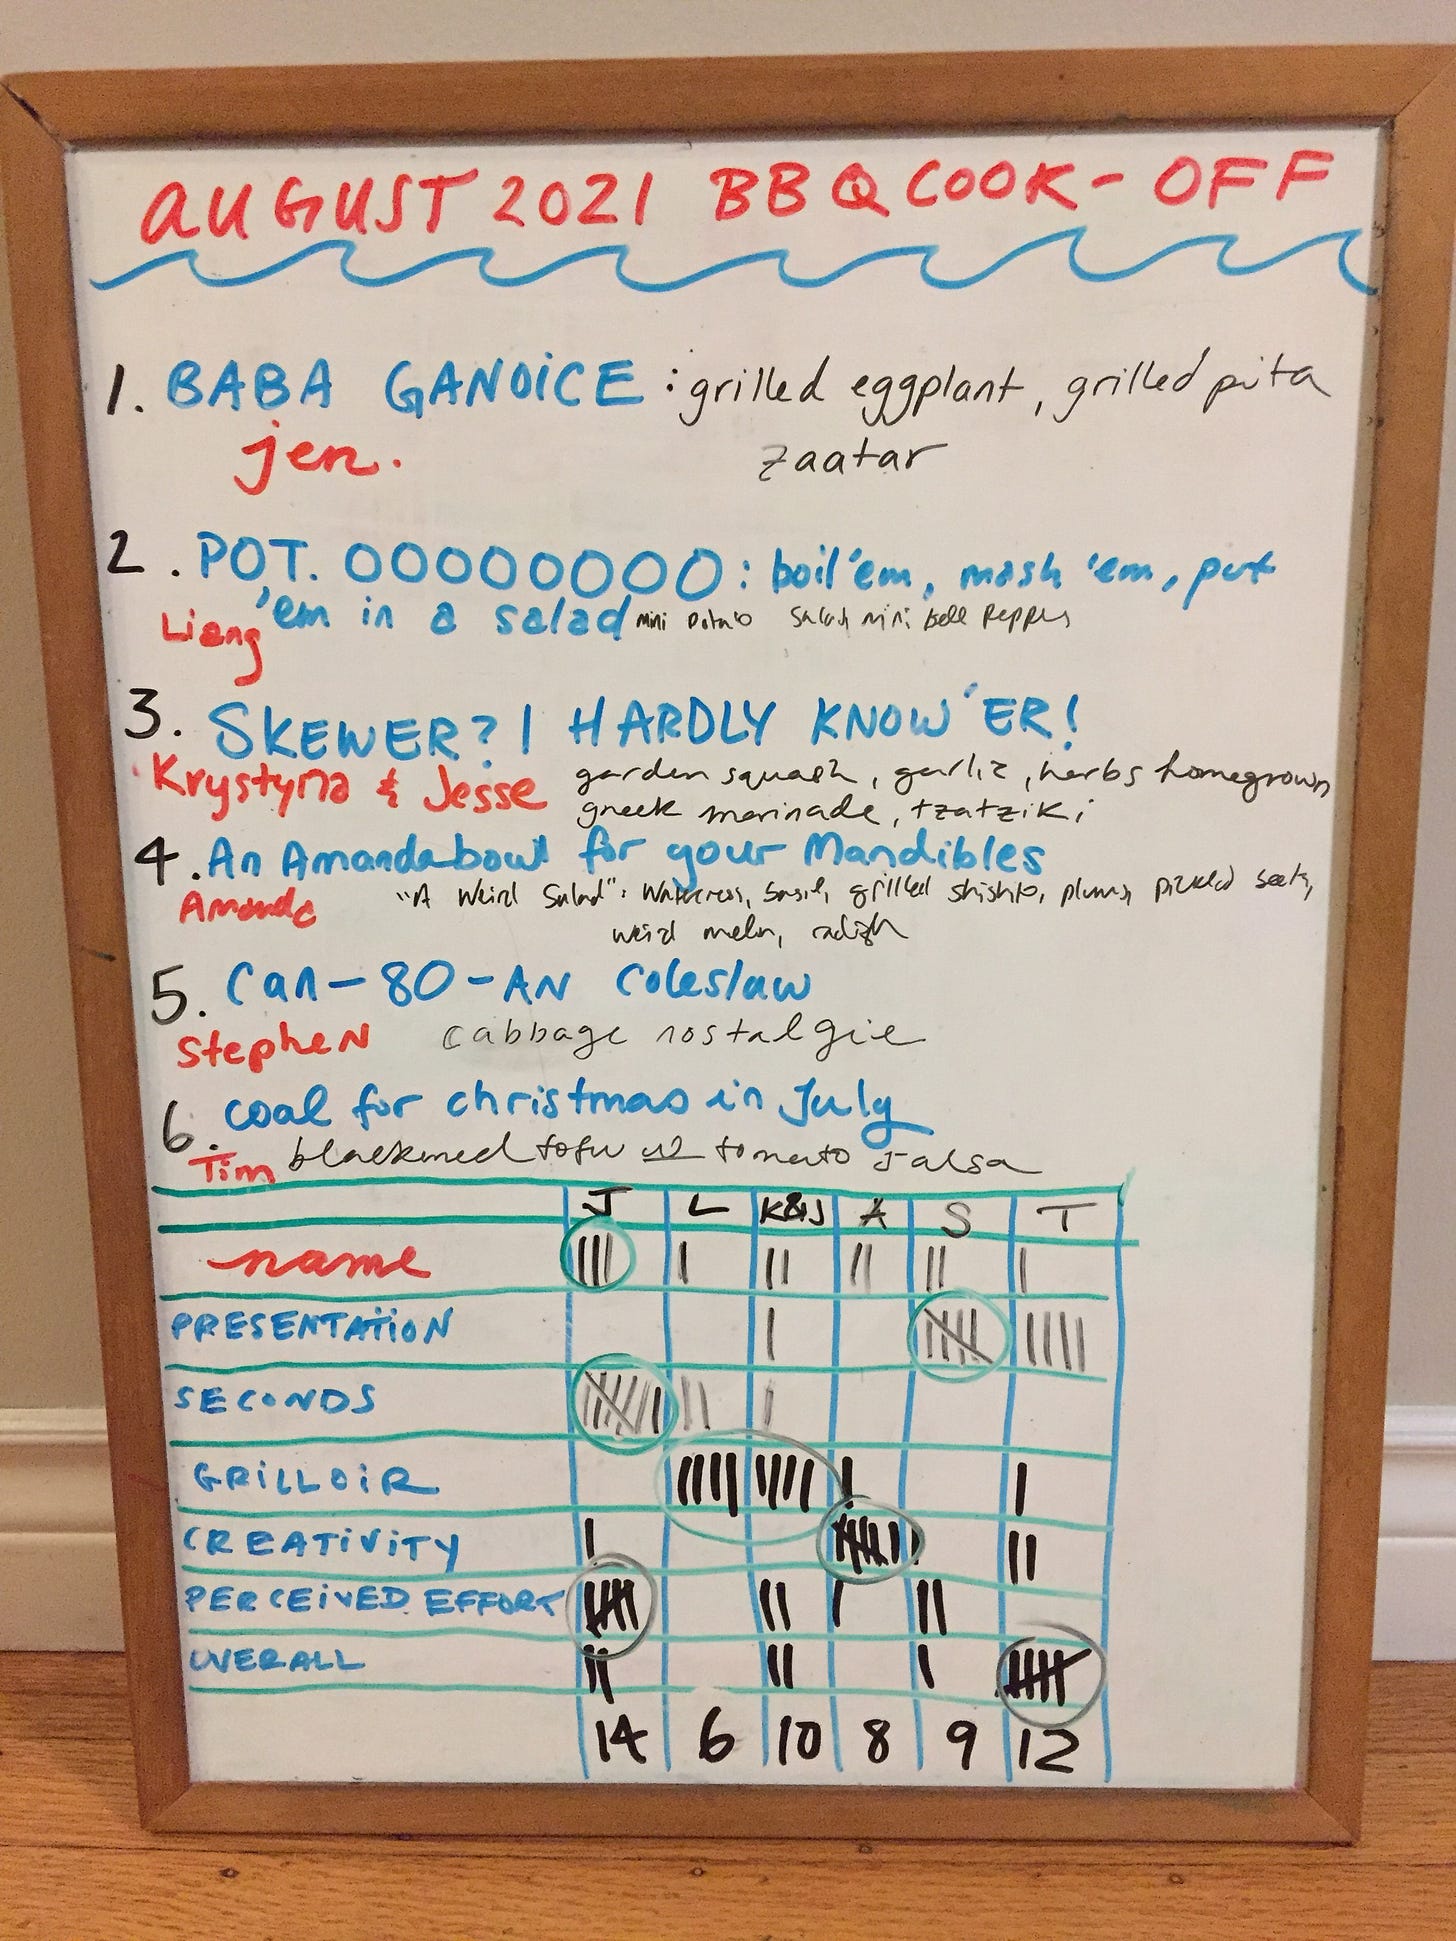 AUGUST 2021 BBQ COOK-OFF
1. BABA GANOICE : grilled eggplant, grilled pita
jen. zaatar
2. POT. OOOOOOOO : boil 'em, mash 'em, put
Liang 'em in a salad mini potato salad mini bell peppers
3. SKEWER? I HARDLY KNOW 'ER!
Krystyna & Jesse garden squash, garlic, herbs homegrown
greek marinade, tzatziki
4. An Amandabowl for your Mandibles
Amanda "A Weird Salad": Watercress, basil, grilled shishito, plums, pickled beets,
weird melon, radish
5. Can-80-AN Coleslaw
Stephen cabbage nostalgie
6. coal for christmas in July
Tim blackened tofu w/ tomato salsa
J L K&J A S T
name
PRESENTATION
SECONDS
GRILLOIR
CREATIVITY
PERCEIVED EFFORT
OVERALL
14 6 10 8 9 12